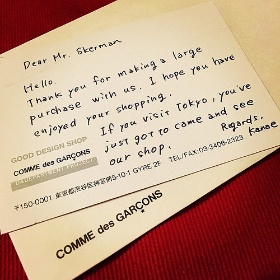 Dear Mr. Skerman
Hello.
Thank you for making a large
purchase with us. I hope you have
enjoyed your shopping.
If you visit Tokyo, you've
just got to came and see
our shop.
Regards,
Kanae
GOOD DESIGN SHOP
COMME des GARÇONS
〒150-0001 東京都渋谷区神宮前5-10-1 GYRE 2F TEL/FAX:03-3406-2323
COMME des GARÇONS